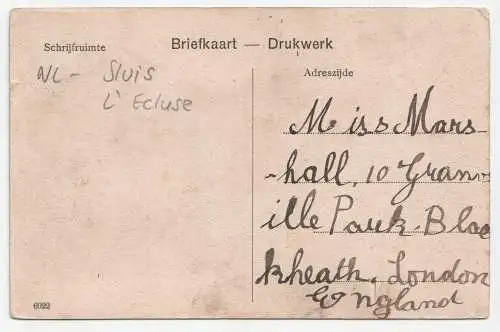 Briefkaart — Drukwerk
Schrijfruimte
Adreszijde
NL - Sluis
L'Ecluse
Miss Mars-
-hall, 10 Gran-
ille Park Blac
kheath, London
England
6022